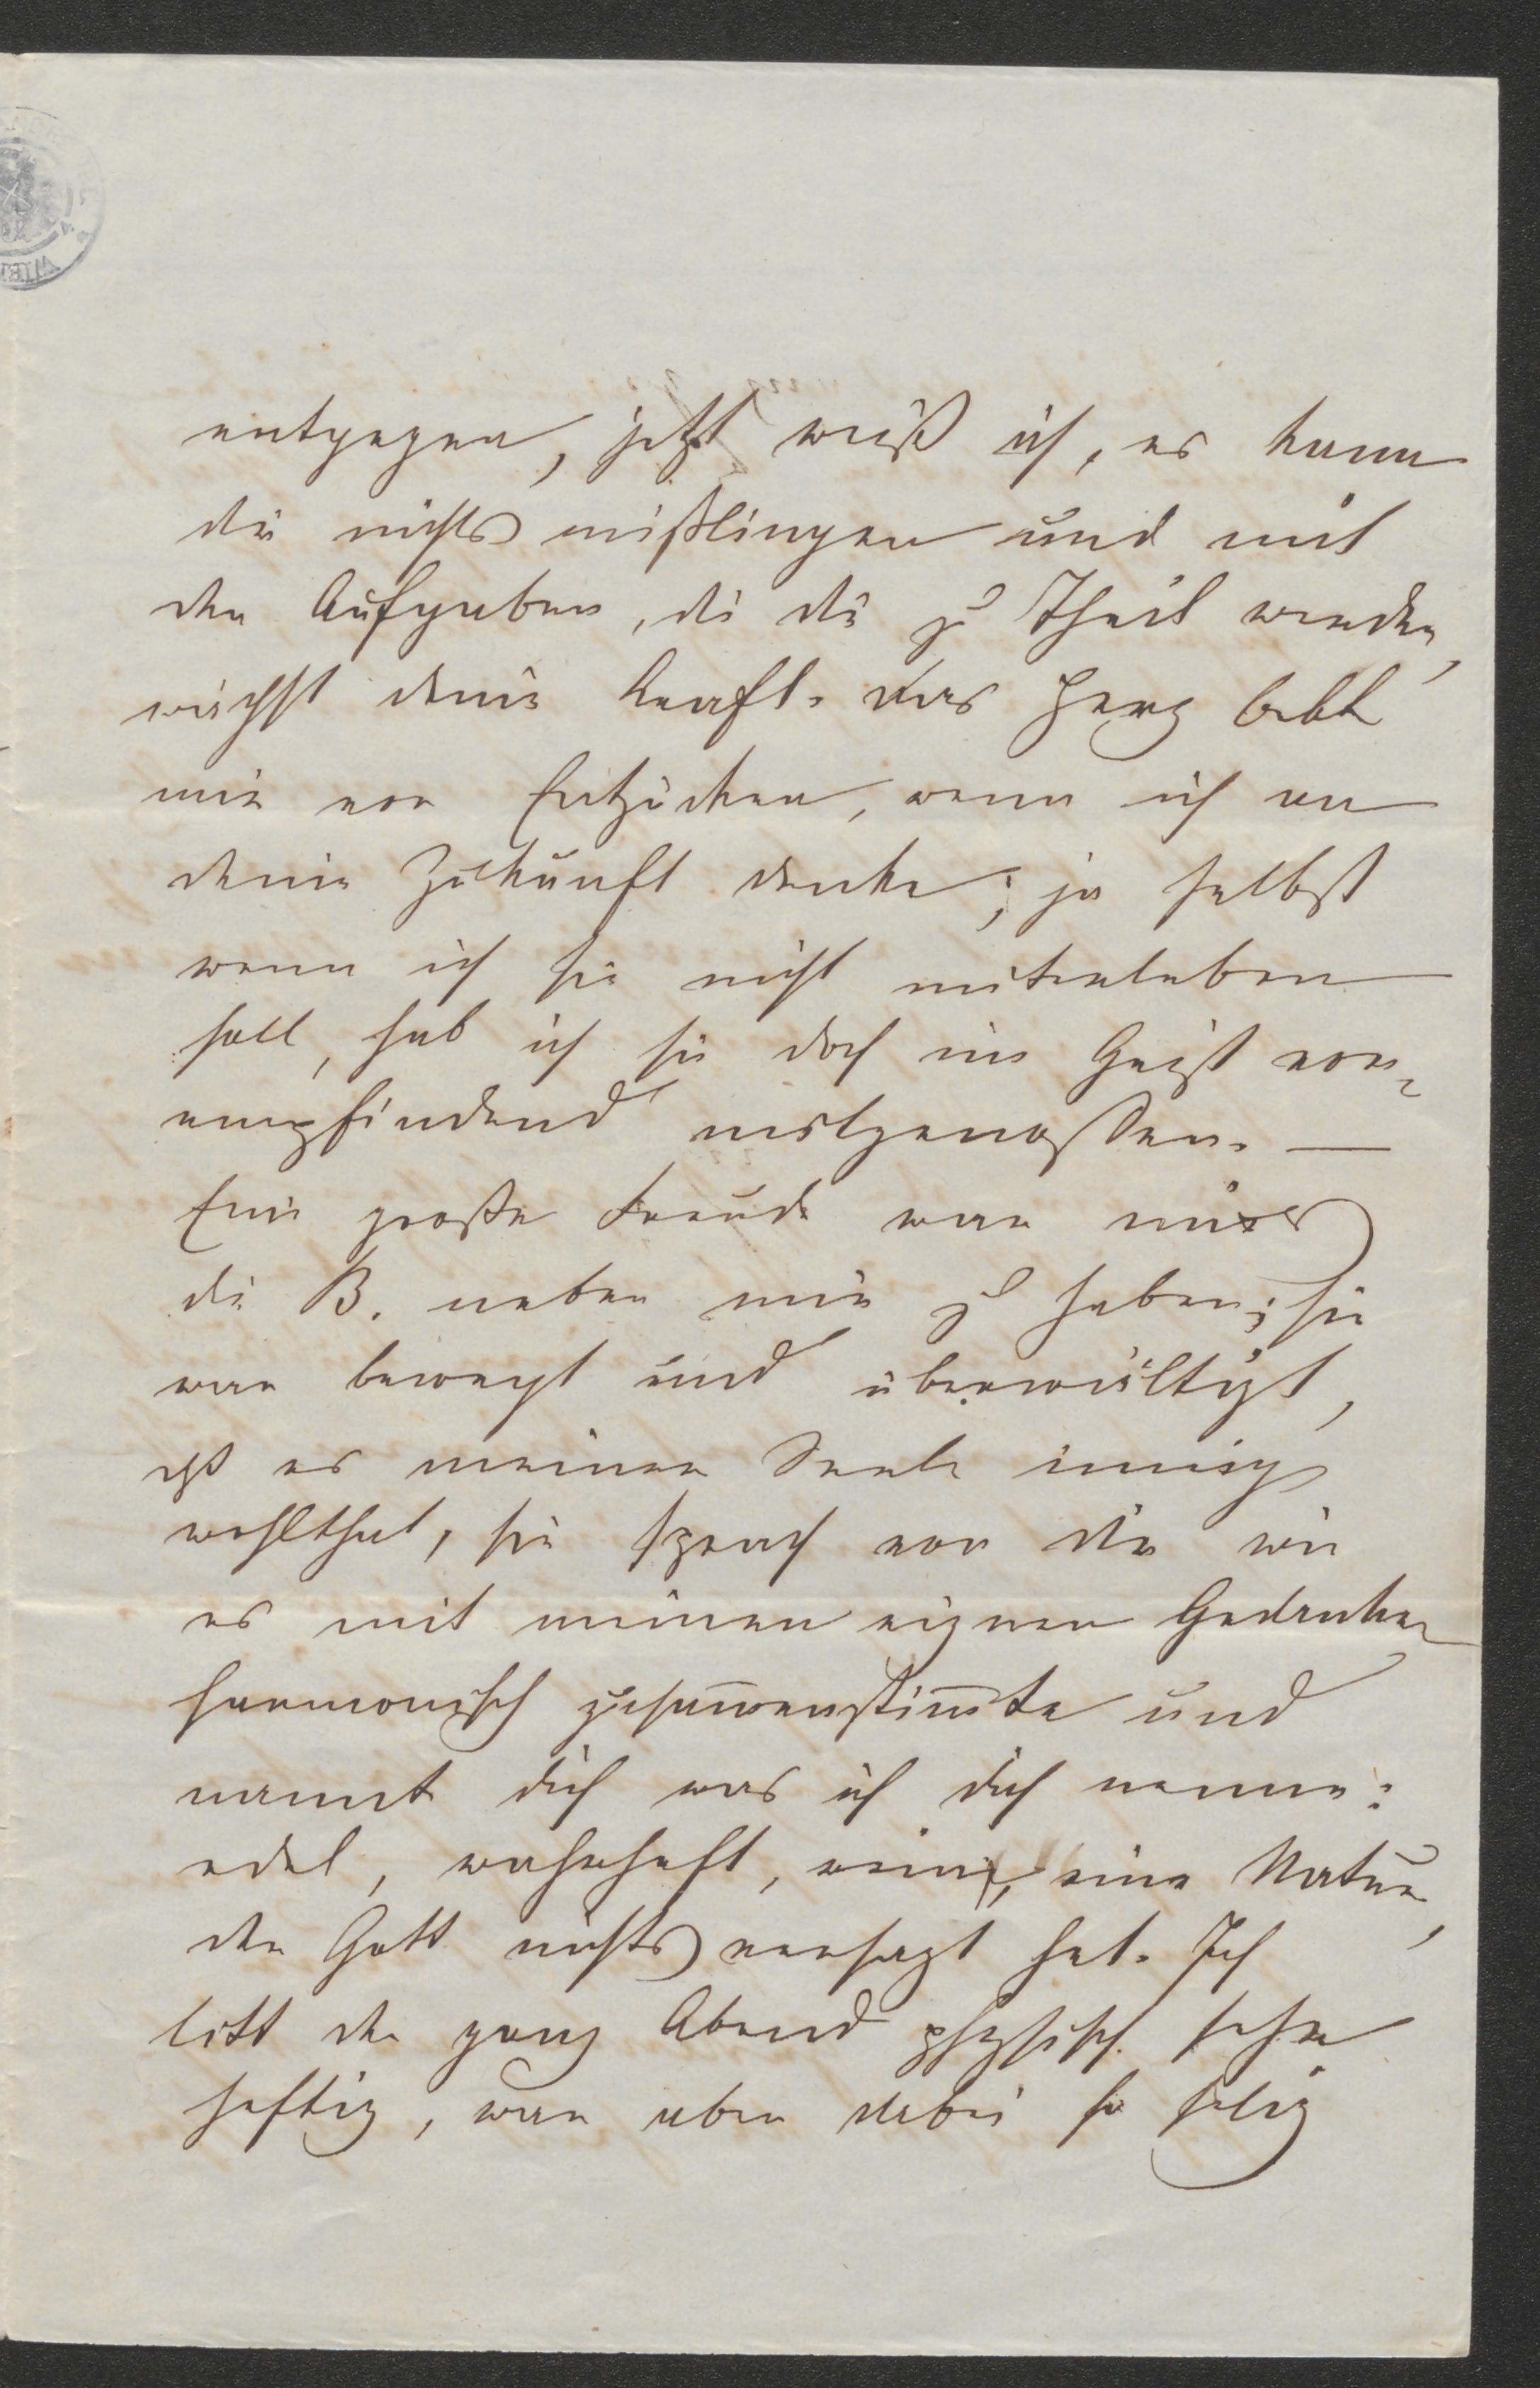 entgegen, jetzt weiß ich, es kann
dir nichts mißlingen und mit
den Aufgaben, die dir zu Theil werden,
wächst deine Kraft. Das Herz bebt
mir vor Entzücken, wenn ich an
deine Zukunft denke; ja selbst
wenn ich sie nicht miterleben
soll, hab ich sie doch im Geist vor-
empfindend mitgenossen. —
Eine große Freude war mir es
die B. neben mir zu haben; sie
war bewegt und überwältigt,
daß es meiner Seele innig
wohlthat, sie sprach von dir wie
es mit meinen eignen Gedanken
harmonisch zusam̅enstim̅te und
nannte dich was ich dich nenne:
edel, wahrhaft, rein, eine Natur,
der Gott nichts versagt hat. Ich
litt den ganz Abend physisch sehr
heftig, war aber dabei so selig